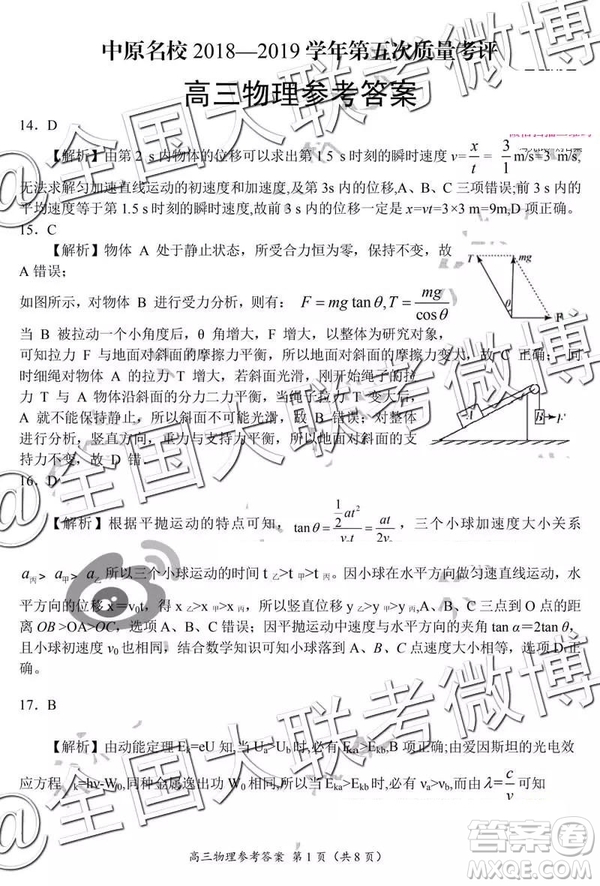 中原名校 2018—2019 学年第五次质量考评
高三物理参考答案
14．D
【解析】由第 2 s 内物体的位移可以求出第 1.5 s 时刻的瞬时速度 v= x/t = 3/1 m/s=3 m/s,
无法求解匀加速直线运动的初速度和加速度,及第 3s 内的位移,A、B、C 三项错误;前 3 s 内的
平均速度等于第 1.5 s 时刻的瞬时速度,故前 3 s 内的位移一定是 x=vt=3×3 m=9m,D 项正确。
15．C
【解析】物体 A 处于静止状态，所受合力恒为零，保持不变，故
A 错误;
如图所示，对物体 B 进行受力分析，则有： F = mg tan θ, T = mg/cosθ
T
mg
θ
F
当 B 被拉动一个小角度后，θ 角增大，F 增大，以整体为研究对象，
可知拉力 F 与地面对斜面的摩擦力平衡，所以摩擦力变大，故 C 正确；同
时细绳对物体 A 的拉力 T 增大，若斜面光滑，刚开始细绳的拉
力 T 与 A 物体沿斜面的分力二力平衡，当绳子拉力 T 变大后，
A 就不能保持静止，所以斜面不可能光滑，故 B 错误；对整体
进行分析，竖直方向，重力与支持力平衡，所以地面对斜面的支
持力不变，故 D 错．
A
B
F
16．D
【解析】根据平抛运动的特点可知， tanθ = ½at²/v₀t = at/2v₀ ，三个小球加速度大小关系
a丙> a甲> a乙 所以三个小球运动的时间 t 乙>t 甲>t 丙。因小球在水平方向做匀速直线运动，水
平方向的位移 x＝v₀t，得 x 乙>x 甲>x 丙，所以竖直位移 y 乙>y 甲>y 丙,A、B、C 三点到 O 点的距
离 OB >OA>OC，选项 A、B、C 错误；因平抛运动中速度与水平方向的夹角 tan α＝2tan θ，
且小球初速度 v₀也相同，结合数学知识可知小球落到 A、B、C 点速度大小相等，选项 D 正
确。
17．B
【解析】由动能定理 Ek=eU 知,当 Ua>Ub 时,必有 Eka>Ekb,B 项正确;由爱因斯坦的光电效
应方程 k=hν-W₀,同种金属逸出功 W₀ 相同,若 Eka>Ekb 时,必有 νa>νb,而由λ= c/ν 可知
高三物理参考答案 第 1 页（共 8 页）
@全国大联考微博
@全国大联考微博
@全国大联考微博
答案圈
MXQE.COM